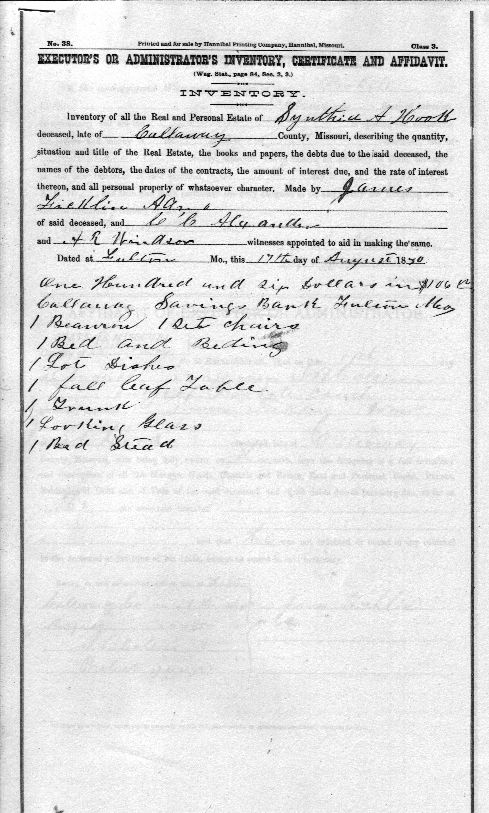 No. 38. Printed and for sale by Hannibal Printing Company, Hannibal, Missouri. Class 3.
EXECUTOR'S OR ADMINISTRATOR'S INVENTORY, CERTIFICATE AND AFFIDAVIT.
(Wag. Stat., page 84, Sec. 2, 3.)
INVENTORY.
Inventory of all the Real and Personal Estate of Synthia A Hook
deceased, late of Callaway County, Missouri, describing the quantity,
situation and title of the Real Estate, the books and papers, the debts due to the said deceased, the
names of the debtors, the dates of the contracts, the amount of interest due, and the rate of interest
thereon, and all personal property of whatsoever character. Made by James
Ficklin Adm
of said deceased, and C C Alexander
and A R Windsor witnesses appointed to aid in making the same.
Dated at Fulton Mo., this 17th day of August 18
One Hundred and six Dollars in $106
Callaway Savings Bank Fulton Mo
1 Beaurow 1 Set chairs
1 Bed and Beding
1 Lot Dishes
1 fall leaf Table.
1 Trunk
1 Looking Glass
1 Bed Stead